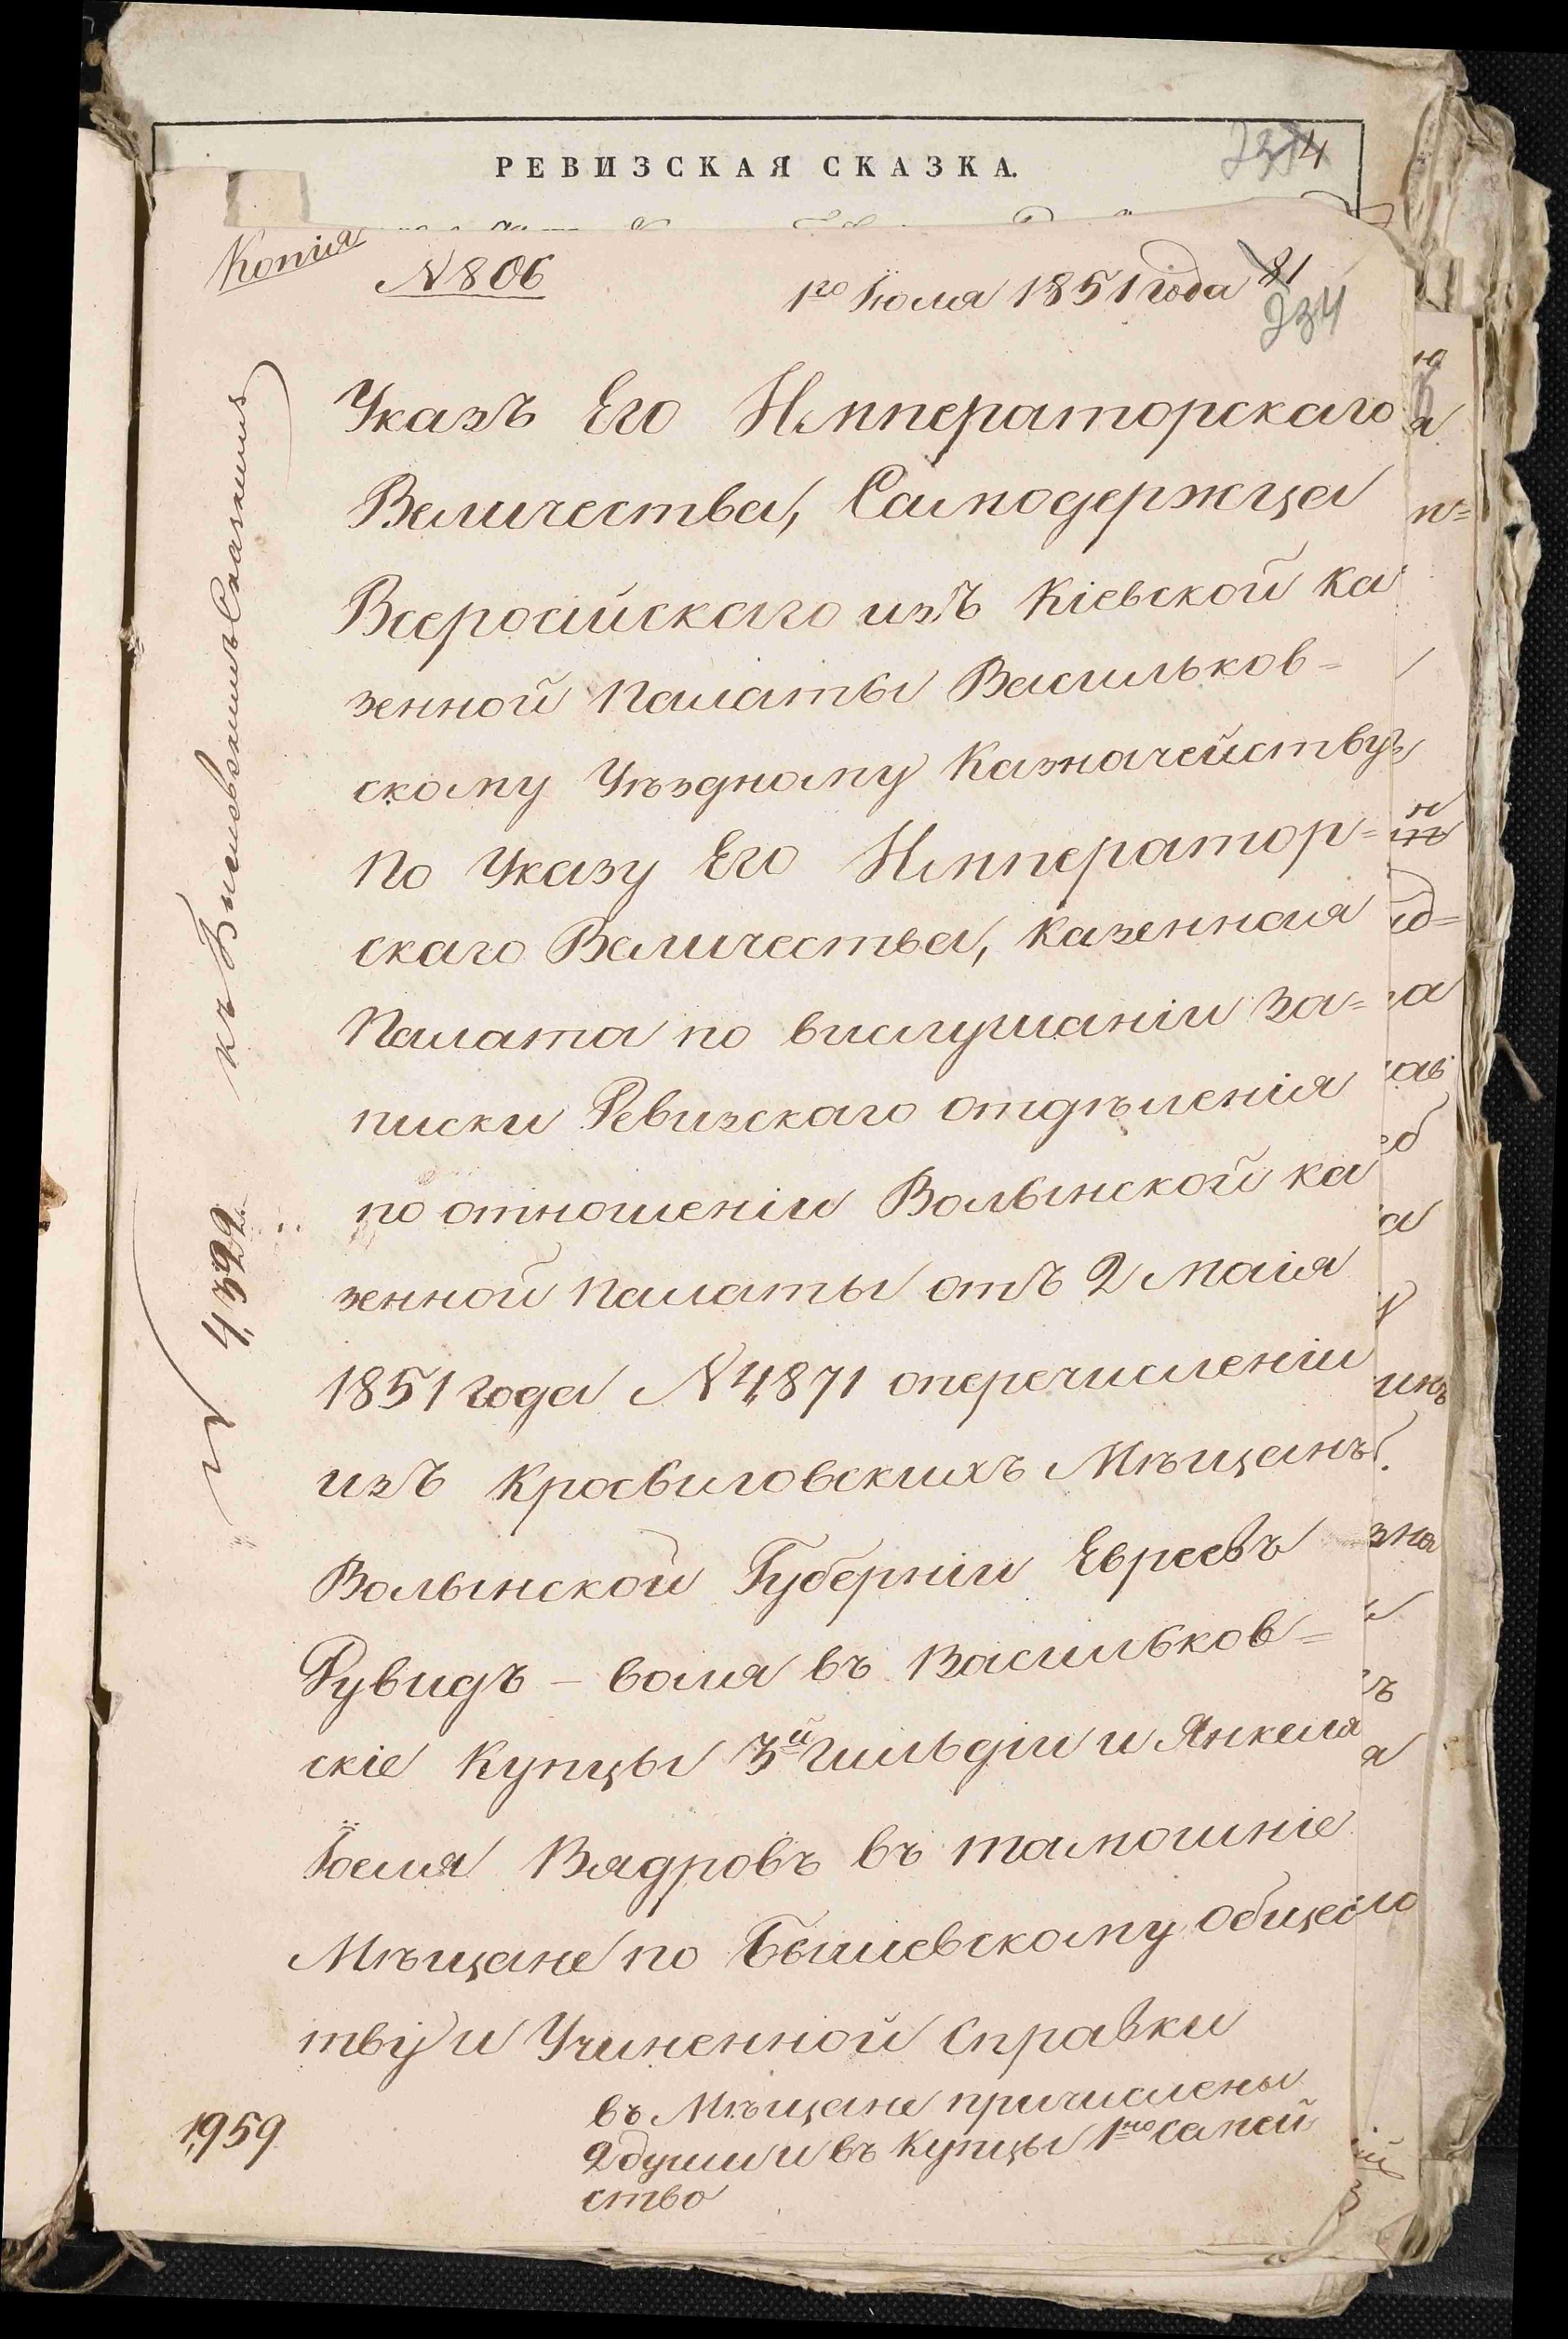 РЕВИЗСКАЯ СКАЗКА.
234
Копія
N 806
1го Іюля 1851 года
81
234
Указъ Его Императорскаго
Величества, Самодержца
Всеросійскаго изъ Кіевской ка
зенной Палаты Васильков=
скому Уѣздному Казначейству
По Указу Его Император=
скаго Величества, Казенная
Палата по вислушаніи За=
писки Ревизскаго отдѣленія
по отношеніи Волынской ка
зенной Палаты отъ 2 Маія
1851 года N 4871 о перечисленіи
изъ Мѣщанъ
Волынской Губерніи Евреевъ
Рувидъ - воля въ Васильков=
скіе Купцы 3й Гильдіи и Янкеля
Іоеля Вядровъ въ тамошніе
Мѣщане по Бышевскому общес
тву и Учиненной Справки
въ Мѣщане причислены
2 души и въ Купцы 1но Самей
ство
1959
N 4,392
къ